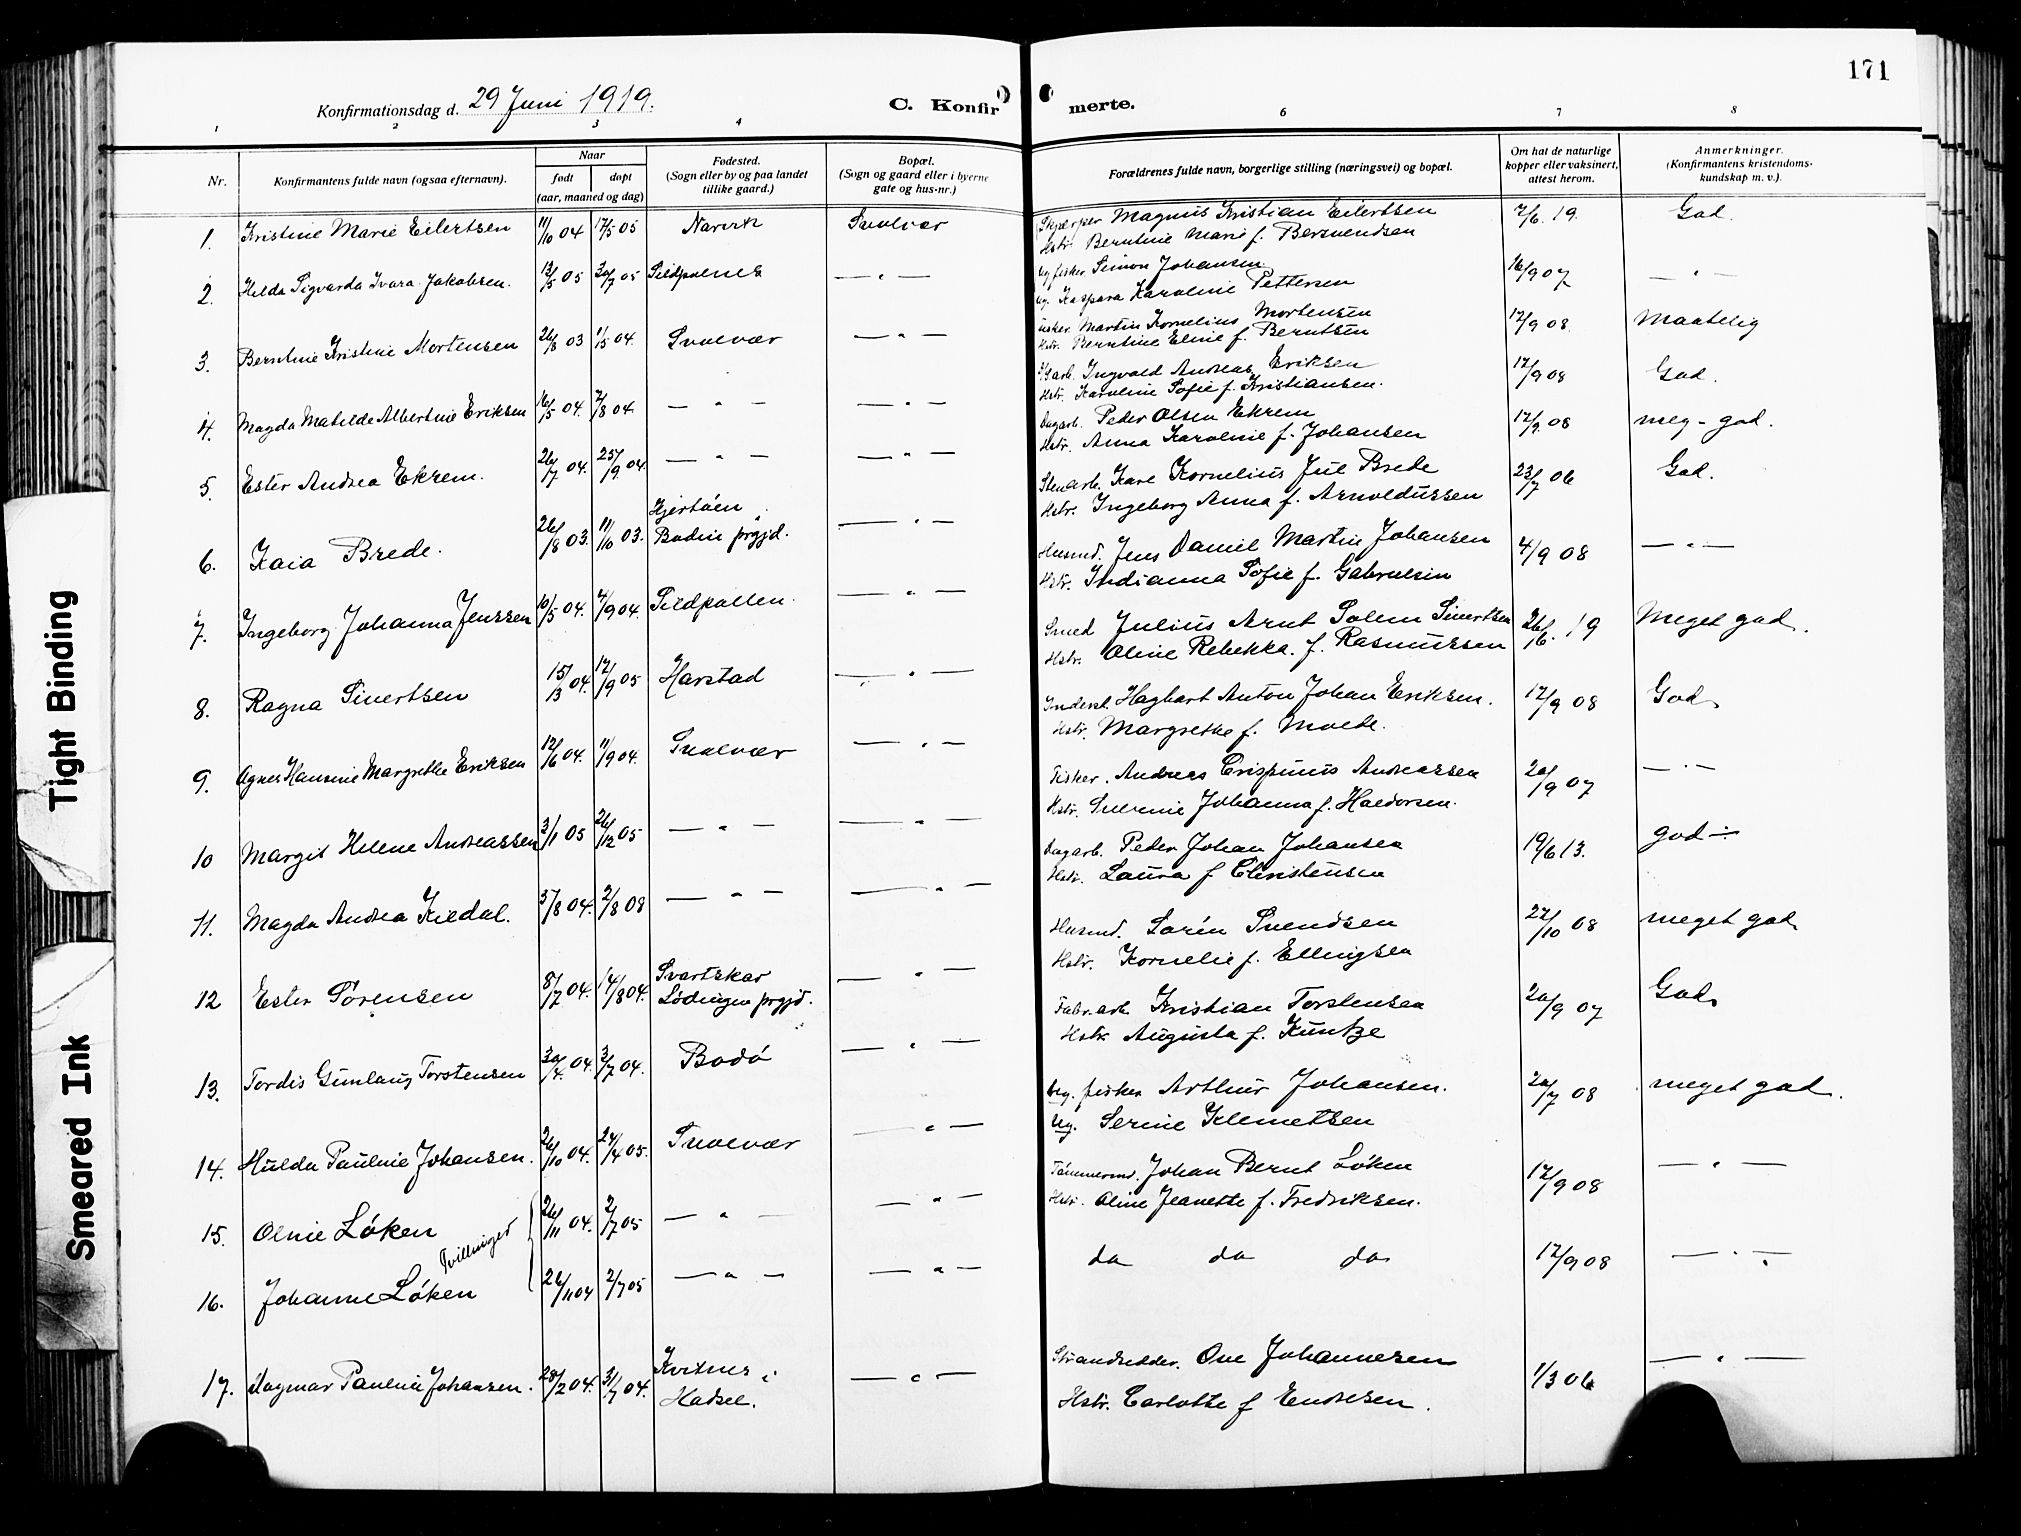 171
Konfirmationsdag d. 29 Juni 1919.
C. Konfirmerte.
1 2 3 4 6 7 8
Nr.
Konfirmantens fulde navn (ogsaa efternavn).
Naar
født døpt
(aar, maaned og dag)
Fødested.
(Sogn eller by og paa landet
tillike gaard.)
Bopæl.
(Sogn og gaard eller i byerne
gate og hus-nr.)
Forældrenes fulde navn, borgerlige stilling (næringsvei) og bopæl.
Om hat de naturlige
kopper eller vaksinert,
attest herom.
Anmerkninger.
(Konfirmantens kristendoms-
kundskap m. v.).
1. Kristine Marie Eilertsen 11/10 04 17/5 05 Narvik Svolvær
Magnus Kristian Eilertsen 7/6. 19. God.
Hstr. Berntine Marie f.
2. Hilda Sigvarda Ivara Jakobsen. 13/5 05 30/7 05 — " —
Ug fisker Simon Johansen 16/9 07 — " —
Ug. Kaspara Karoline Pettersen
3. Berntine Kristine Mortensen 26/8 03 1/5 04. Svolvær — " —
Fisker Martin Kornelius Mortensen 17/9 08. Maatelig
Hstr. Berntine Eline f. Berntsen
4. Magda Matilde Albertine Eriksen 16/5 04. 7/8 04 — " — — " —
Ingvald Andreas Eriksen 17/9 08 God.
Hstr. Karoline Sofie f. Kristiansen.
5. Ester Andrea Ekrem. 26/7 04. 25/9 04. — " — — " —
Dagarb. Peder Olsen Ekrem 17/9. 08 meg-god.
Hstr. Anna Karoline f. Johansen
6. Kaia Brede. 26/8 03. 11/10 03. Hjertøen
Bodin prgjd. — " —
Stenarb. Kare Kornelius Jul Brede 23/7 06 God.
Hstr. Ingeborg Anna f. Arnoldussen
7. Ingeborg Johanna Jenssen 10/5 04. 4/9 04. Sildpollen. — " —
Husmd. Jens Daniel Martin Johansen 4/9 08 — " —
Hstr. Indianna Sofie f. Gabrielsen
8. Ragna Sivertsen 15/3 04. 17/9 05 Harstad — " —
Smed Julius Arnt Solem Sivertsen 26/6. 19 Meget god.
Hstr. Oline Rebekka. f. Rasmussen
9. Agnes Hansine Margrethe Eriksen 12/6 04. 11/9 04. Svolvær — " —
Inderst. Hagbart Anton Johan Eriksen. 17/9 08 God.
Hstr. Margrethe f. Molde.
10 Margit Helene Andreassen 3/1 05 26/12 05 — " — — " —
Fisker. Andreas Crispinus Andreassen 20/9 07 — " —
Hstr. Severine Johanna f. Haldorsen.
11. Magda Andrea Kildal. 3/8 04. 2/8 08 — " — — " —
Dagarb. Peder Johan Johansen 19/6 13. god
Hstr. Laura f Christensen
12 Ester Sørensen 8/7 04. 14/8 04. Svartskar
Lødingen prgjd. — " —
Husmd. Sørin Svendsen 27/10 08 meget god.
Hstr. Kornelie f. Ellingsen
13. Tordis Gunlaug Torstensen 30/4. 04. 3/7 04. Bodø — " —
Fabr.arb. Kristian Torstensen 20/9 07 God.
Hstr. Augusta f. Kuntze
14. Hulda Pauline Johansen. 26/10 04. 24/4 05. Svolvær — " —
Ug. fisker Arthur Johansen. 20/7 08 meget god.
Ug. Serine Klemetsen
15. Oline Løken 26/11 04. 2/7 05 — " — — " —
Tvillinger
Tømmermd. Johan Bernt Løken 17/9 08 — " —
Hstr. Oline Jeanette f. Fredriksen.
16. Johanne Løken 26/11 04 2/7 05 — " — — " —
do do do 17/9 08 — " —
17. Dagmar Pauline Johansen. 28/2 04. 31/7 04. Kvitnes i
Hadsel. — " —
Strandsidder. Ove Johannesen 1/3 06 — " —
Hstr. Carlotte f Endresen.
Tight Binding
Smeared Ink